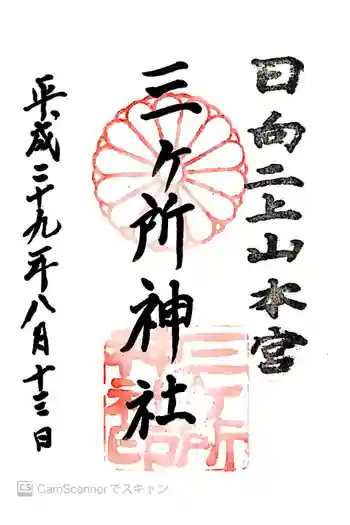 日向二上山本宮
三ヶ所神社
平成二十九年八月十三日
三ヶ所神社印
CS CamScannerでスキャン